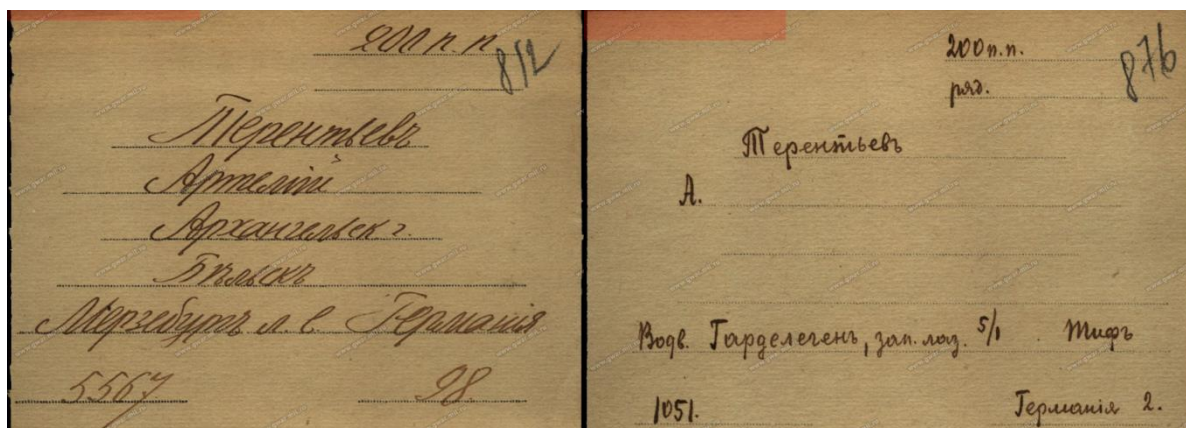 200 п. п.
812
Терентьевъ
Артелій
Архангельск г.
Бѣльскъ
Мерзебургъ л. с. Германія
5567
98.
200 п.п.
876
ряд.
Терентьевъ
А.
Водв. Гарделегенъ, зап. лаз. 5/I. Тифъ
1051.
Германія 2.